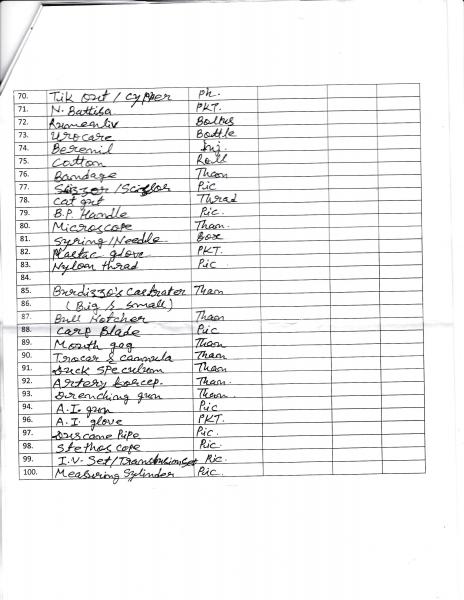 70. Tik out / Cypper Ph.
71. N. Battisa PKT.
72. Rumenliv Boltus
73. Urocare Bottle
74. Berenil Inj.
75. Cotton Roll
76. Bandage Thaon
77. /Scissors Pic
78. Cat gut Thrad
79. B.P. Handle Pic.
80. Microscope Than.
81. Syring/Needle Box
82. Plastic glove PKT.
83. Nylon thrad Pic
84.
85. Burdizzo's Castrater Than
86. (Big & small)
87. Bull Hotcher Thaon
88. Carp Blade Pic
89. Mouth gag Than
90. Trocar & cannula Than
91. Duck Speculum Than
92. Artery forcep. Than.
93. Drenching gun Thaon.
94. A.I. gun Pic
96. A.I. glove PKT.
97. Pipe Pic.
98. Stethoscope Pic.
99. I.V. Set/Transfusion set Pic.
100. Measuring Sylinder Pic.